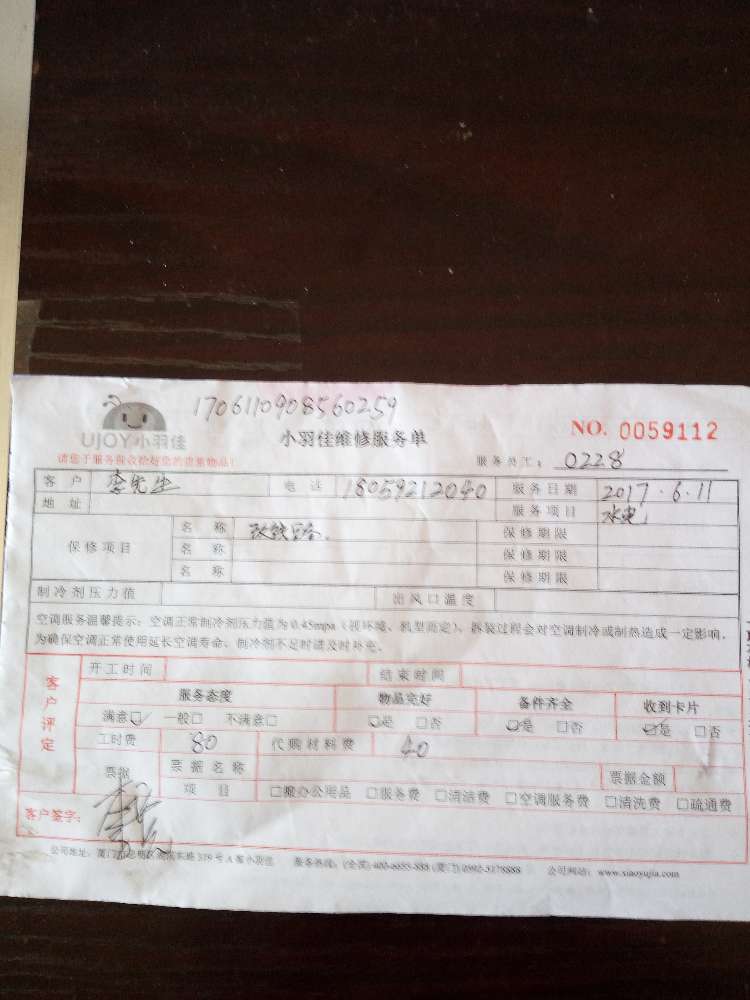 1706110908560259
UJOY小羽佳
小羽佳维修服务单
NO. 0059112
请您于服务前收拾好您的贵重物品!
服务员工: 0228
客户 李先生 电话 18059212040 服务日期 2017.6.11
地址 服务项目 水电
保修项目
名称 保修期限
名称 保修期限
名称 保修期限
制冷剂压力值 出风口温度
空调服务温馨提示:空调正常制冷剂压力值为0.45mpa(视环境、机型而定),拆装过程会对空调制冷或制热造成一定影响,
为确保空调正常使用延长空调寿命,制冷剂不足时请及时补充。
客户评定
开工时间 结束时间
服务态度 物品完好 备件齐全 收到卡片
满意☑ 一般□ 不满意□ ☑是 □否 ☑是 □否 ☑是 □否
工时费 80 代购材料费 40
票据 票据名称 票据金额
项目 □办公用品 □服务费 □清洁费 □空调服务费 □清洗费 □疏通费
客户签字:
公司网站:www.xiaoyujia.com